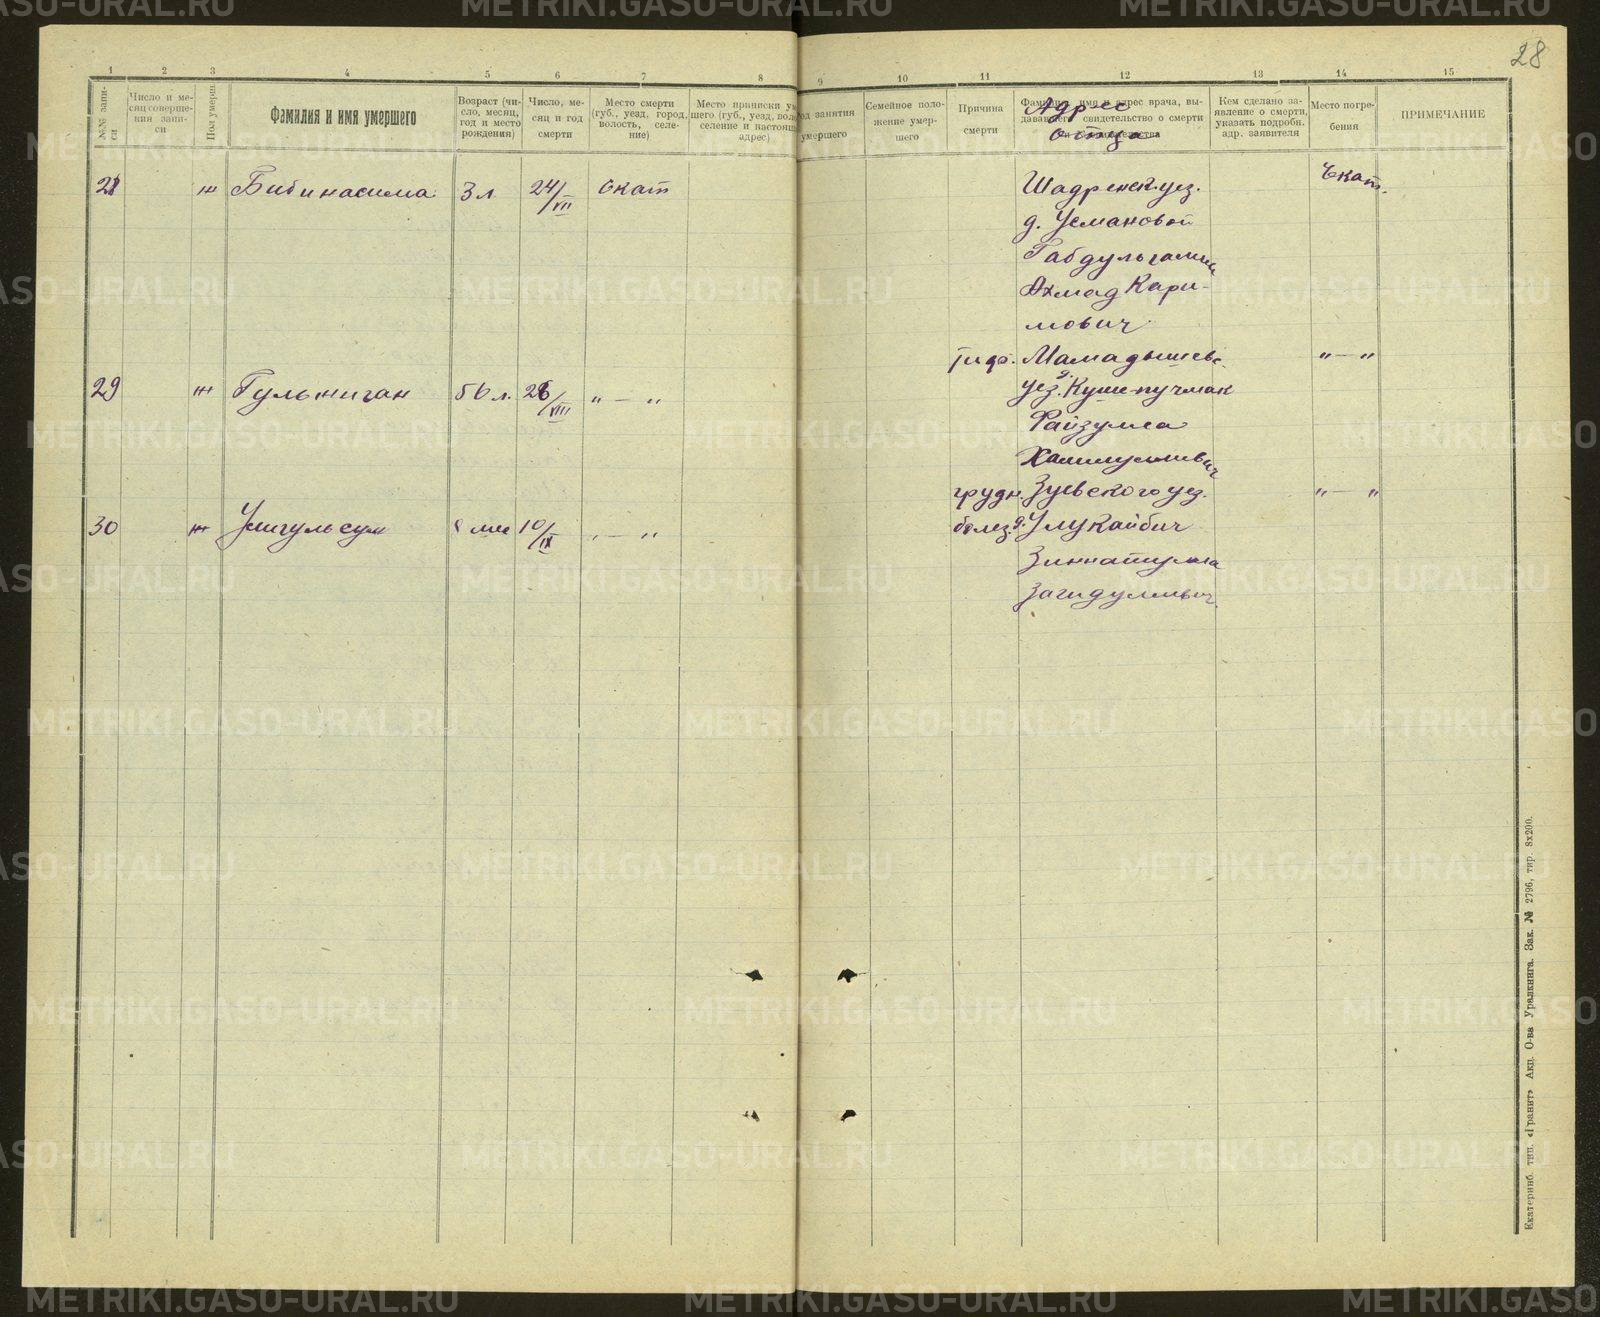 28
1 2 3 4 5 6 7 8 9 10 11 12 13 14 15
№№ запи-
си
Число и ме-
сяц соверше-
ния запи-
си
Пол умерш.
Фамилия и имя умершего
Возраст (чи-
сло, месяц,
год и место
рождения)
Число, ме-
сяц и год
смерти
Место смерти
(губ., уезд, город,
волость, селе-
ние)
Место приписки ум
шего (губ., уезд, воло
селение и настоящ
адрес)
од занятия
умершего
Семейное поло-
жение умер-
шего
Причина
смерти
Фамилия, имя и адрес врача, вы-
дававшего свидетельство о смерти
Адрес
отца
Кем сделано за-
явление о смерти,
указать подробн.
адр. заявителя
Место погре-
бения
ПРИМЕЧАНИЕ
28 ж Бибинасима 3 л 24/VII Екат
Шадренск. уез.
д. Усмановой
Габдульгалим
Ахмад Кари-
мович
Екат.
29 ж Гульжиган 56 л. 26/VIII " — "
тиф. Мамадышевс.
уез. д. Куше-пучмак
Файзулла
Халиуллиевич
" — "
30 ж Умгульсум 8 ме 10/IX " — "
грудн. Зуевского уез.
болез. д. Улукайбич
Зиннатулла
Загидуллович
" — "
Екатеринб. тип. «Гранит» Акц. О-ва Уралкнига. Зак. № 2796, тир. 8х200.
METRIKI.GASO-URAL.RU